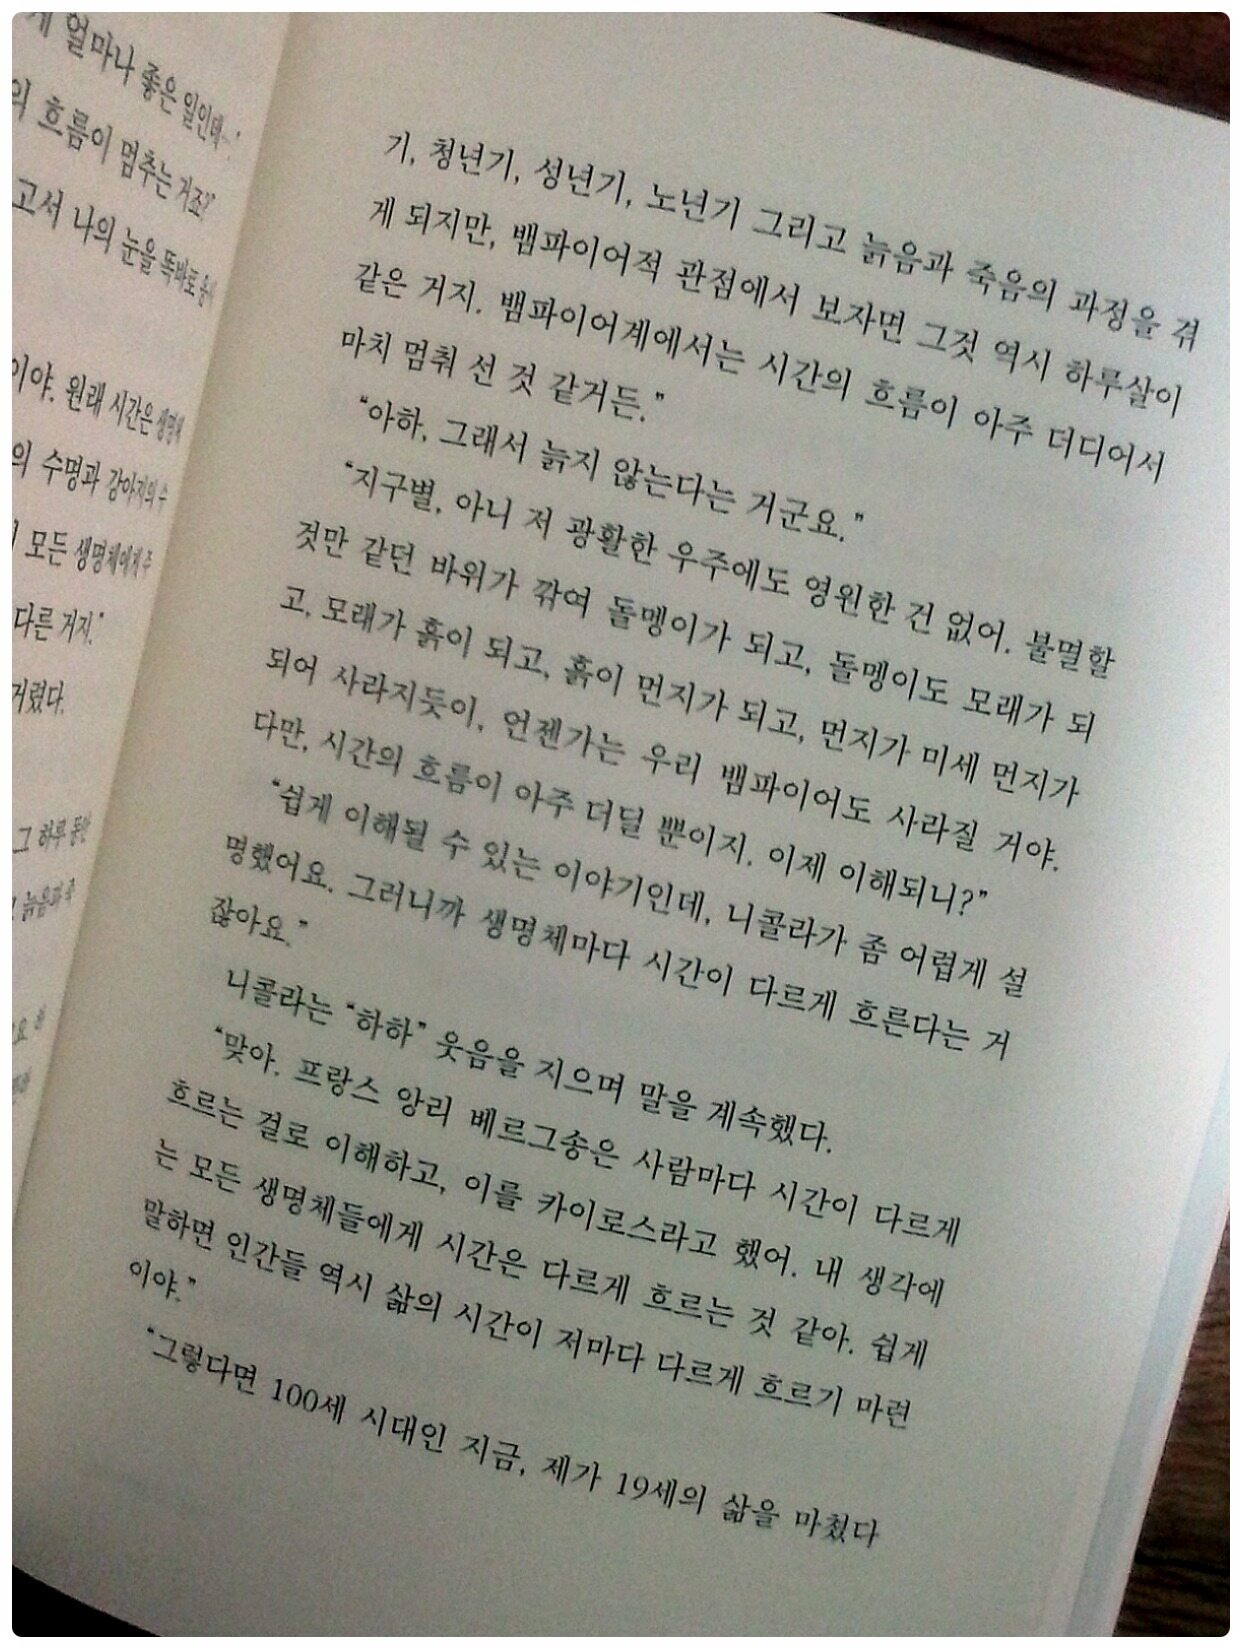 게 얼마나 좋은 일인데…"
의 흐름이 멈추는 거죠?"
고서 나의 눈을 똑바로
이야. 원래 시간은 생명체
의 수명과 강아지의 수
모든 생명체에게 주
다른 거지."
거렸다.
그 하루 동안
늙음과 죽
기, 청년기, 성년기, 노년기 그리고 늙음과 죽음의 과정을 겪
게 되지만, 뱀파이어적 관점에서 보자면 그것 역시 하루살이
같은 거지. 뱀파이어계에서는 시간의 흐름이 아주 더디어서
마치 멈춰 선 것 같거든."
"아하, 그래서 늙지 않는다는 거군요."
"지구별, 아니 저 광활한 우주에도 영원한 건 없어. 불멸할
것만 같던 바위가 깎여 돌멩이가 되고, 돌멩이도 모래가 되
고, 모래가 흙이 되고, 흙이 먼지가 되고, 먼지가 미세 먼지가
되어 사라지듯이, 언젠가는 우리 뱀파이어도 사라질 거야.
다만, 시간의 흐름이 아주 더딜 뿐이지. 이제 이해되니?"
"쉽게 이해될 수 있는 이야기인데, 니콜라가 좀 어렵게 설
명했어요. 그러니까 생명체마다 시간이 다르게 흐른다는 거
잖아요."
니콜라는 "하하" 웃음을 지으며 말을 계속했다.
"맞아. 프랑스 앙리 베르그송은 사람마다 시간이 다르게
흐르는 걸로 이해하고, 이를 카이로스라고 했어. 내 생각에
는 모든 생명체들에게 시간은 다르게 흐르는 것 같아. 쉽게
말하면 인간들 역시 삶의 시간이 저마다 다르게 흐르기 마련
이야."
"그렇다면 100세 시대인 지금, 제가 19세의 삶을 마쳤다